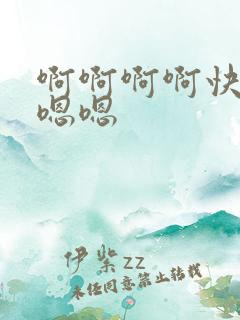 啊啊啊啊快
嗯嗯
伊柴zz
未经同意禁止转载